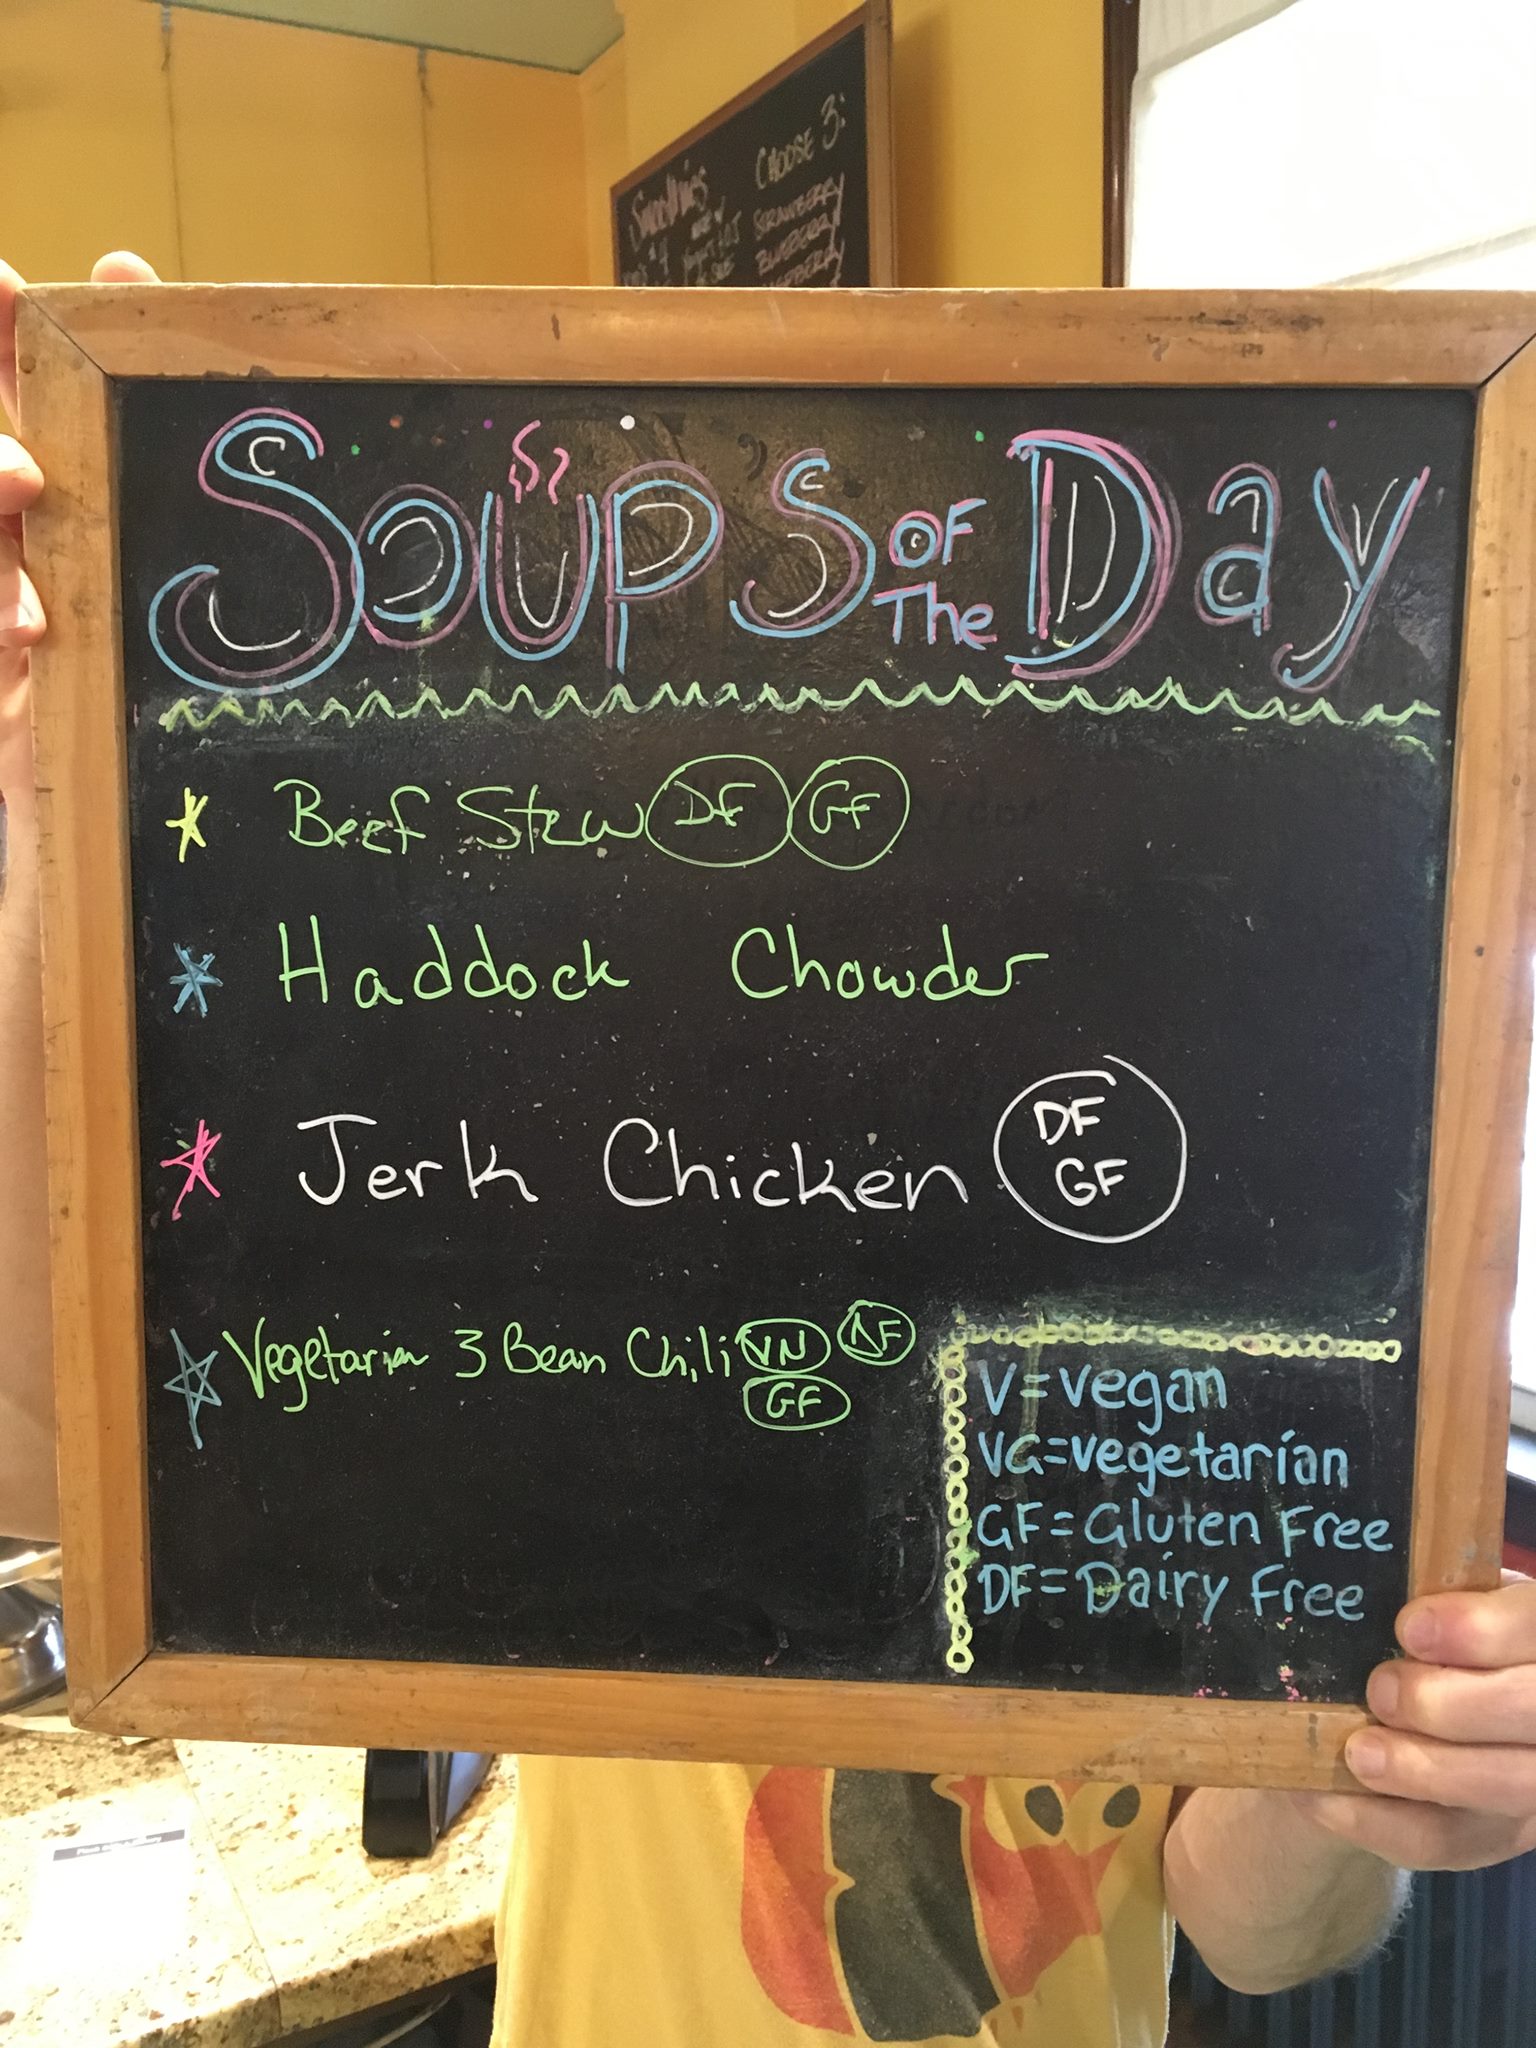 Smoothies
CHOOSE 3:
STRAWBERRY
BLUEBERRY
Soups OF The Day
Beef Stew DF GF
Haddock Chowder
Jerk Chicken DF GF
Vegetarian 3 Bean Chili VN DF
GF
V=vegan
VG=vegetarian
GF=Gluten Free
DF=Dairy Free